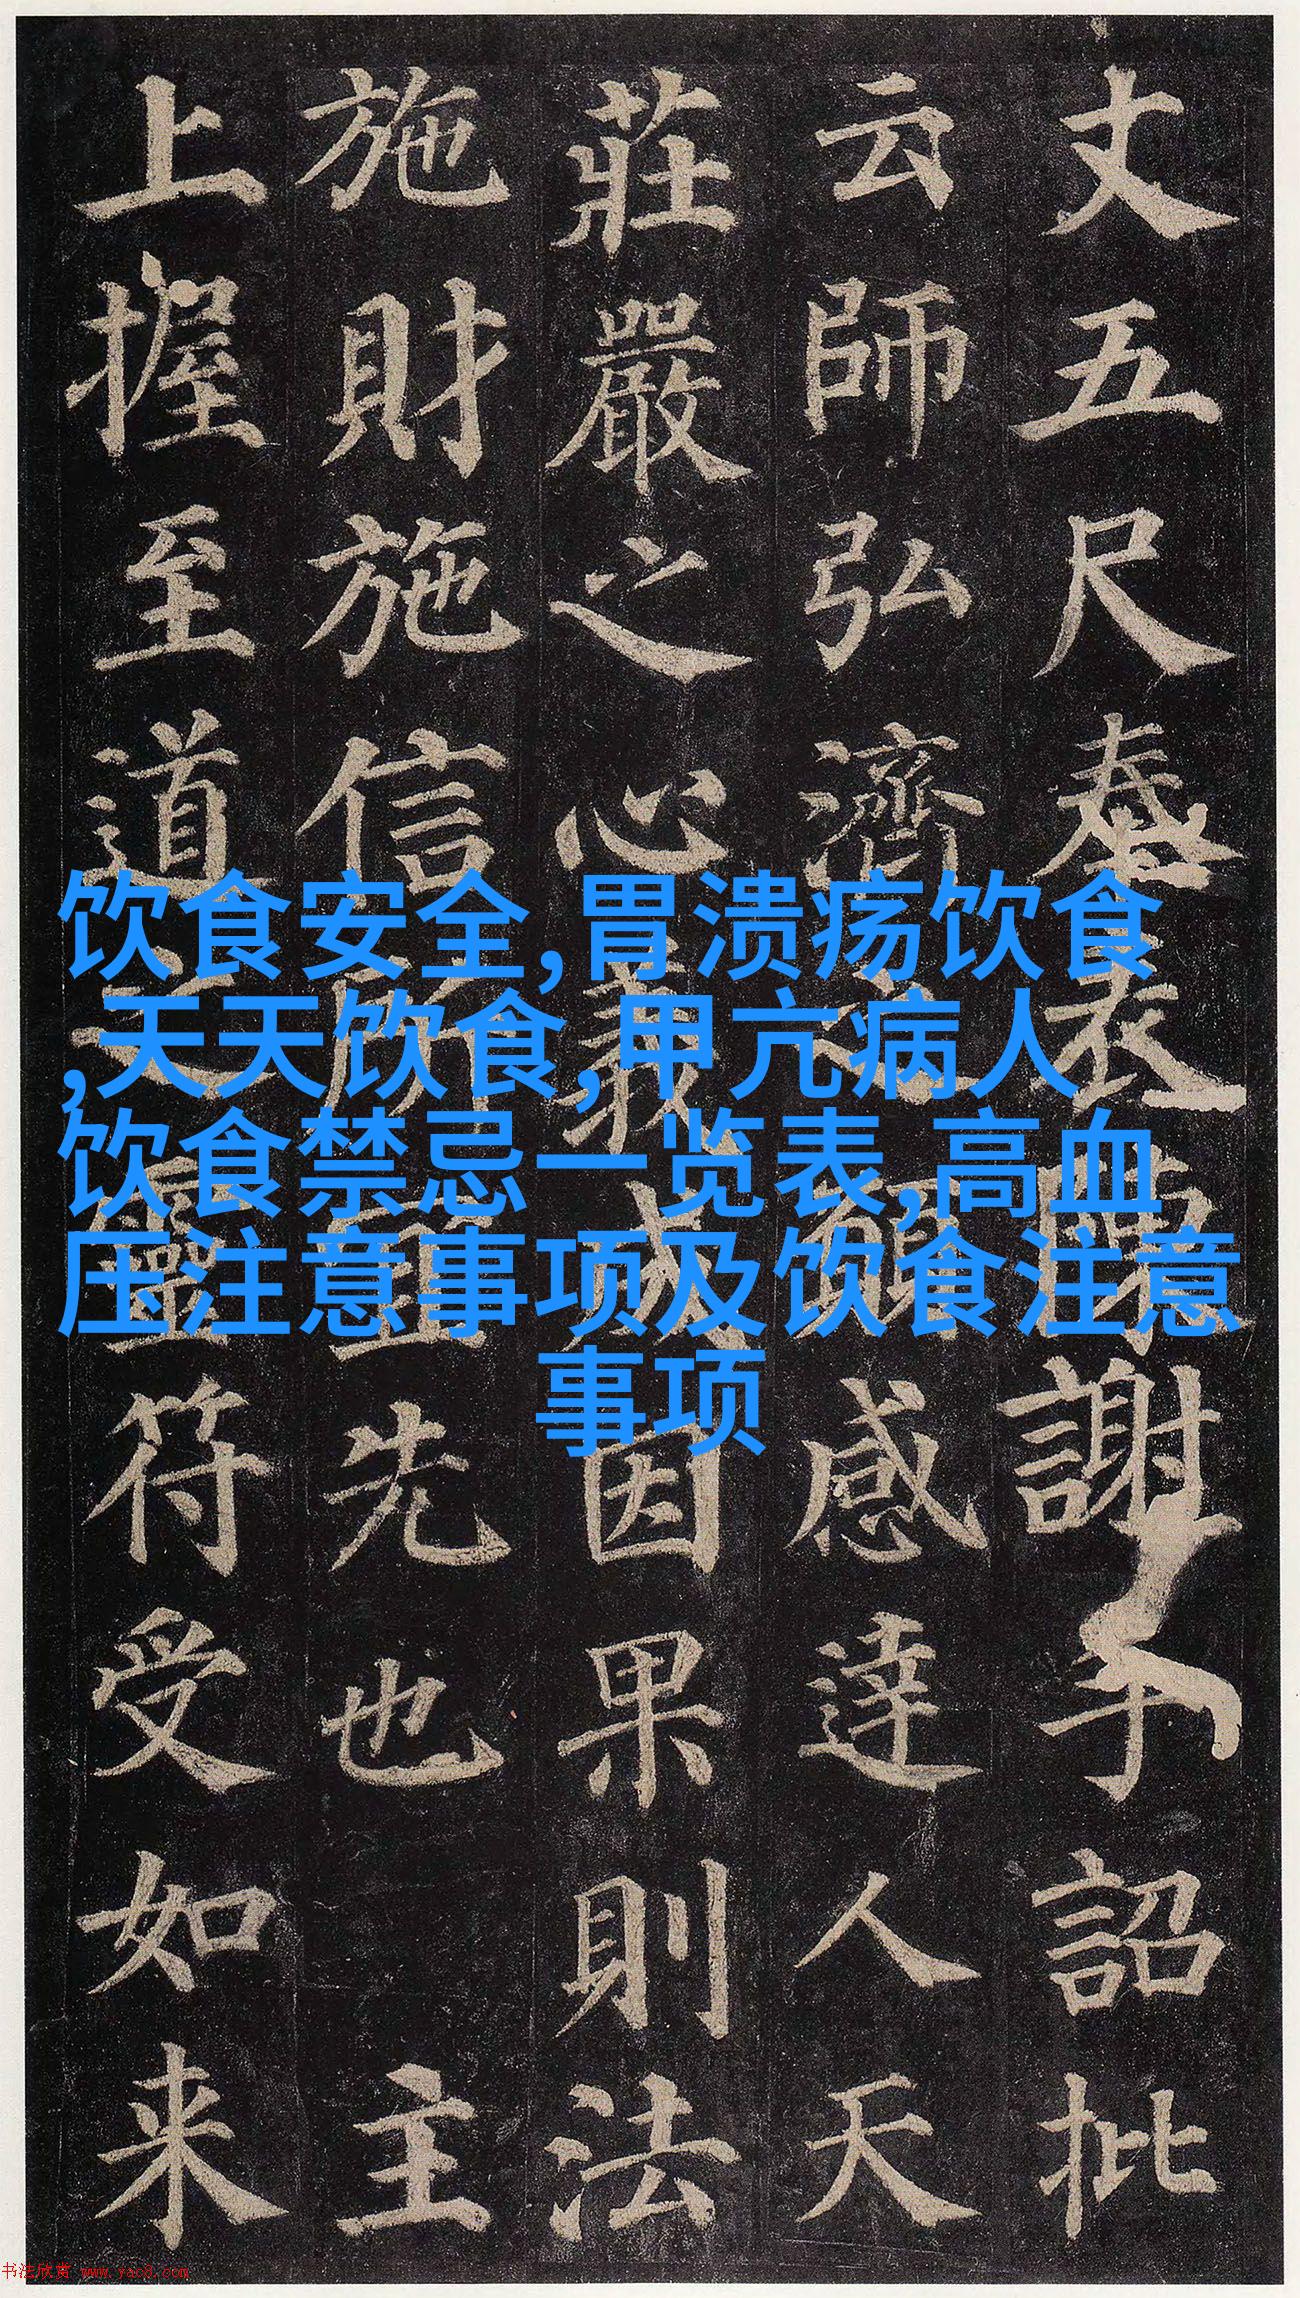 丈五尺奉表陳謝手詔批
云師弘濟之願感達人天
莊嚴之心義成因果則法
施財施信所宜先也 主
上握至道之靈符受如来
饮食安全,胃溃疡饮食
,天天饮食,甲亢病人
饮食禁忌一览表,高血
压注意事项及饮食注意
事项
书法欣赏 www.yac8.com